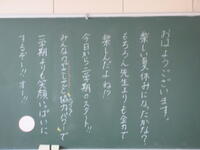 おはようございます。
楽しい夏休みになったかな?
もちろん先生よりも全力で
楽しんだよね!?
今日から二学期のスタート!!
みんなの力で協力して
一学期よりも笑顔いっぱいに
するぞー!!オー!!